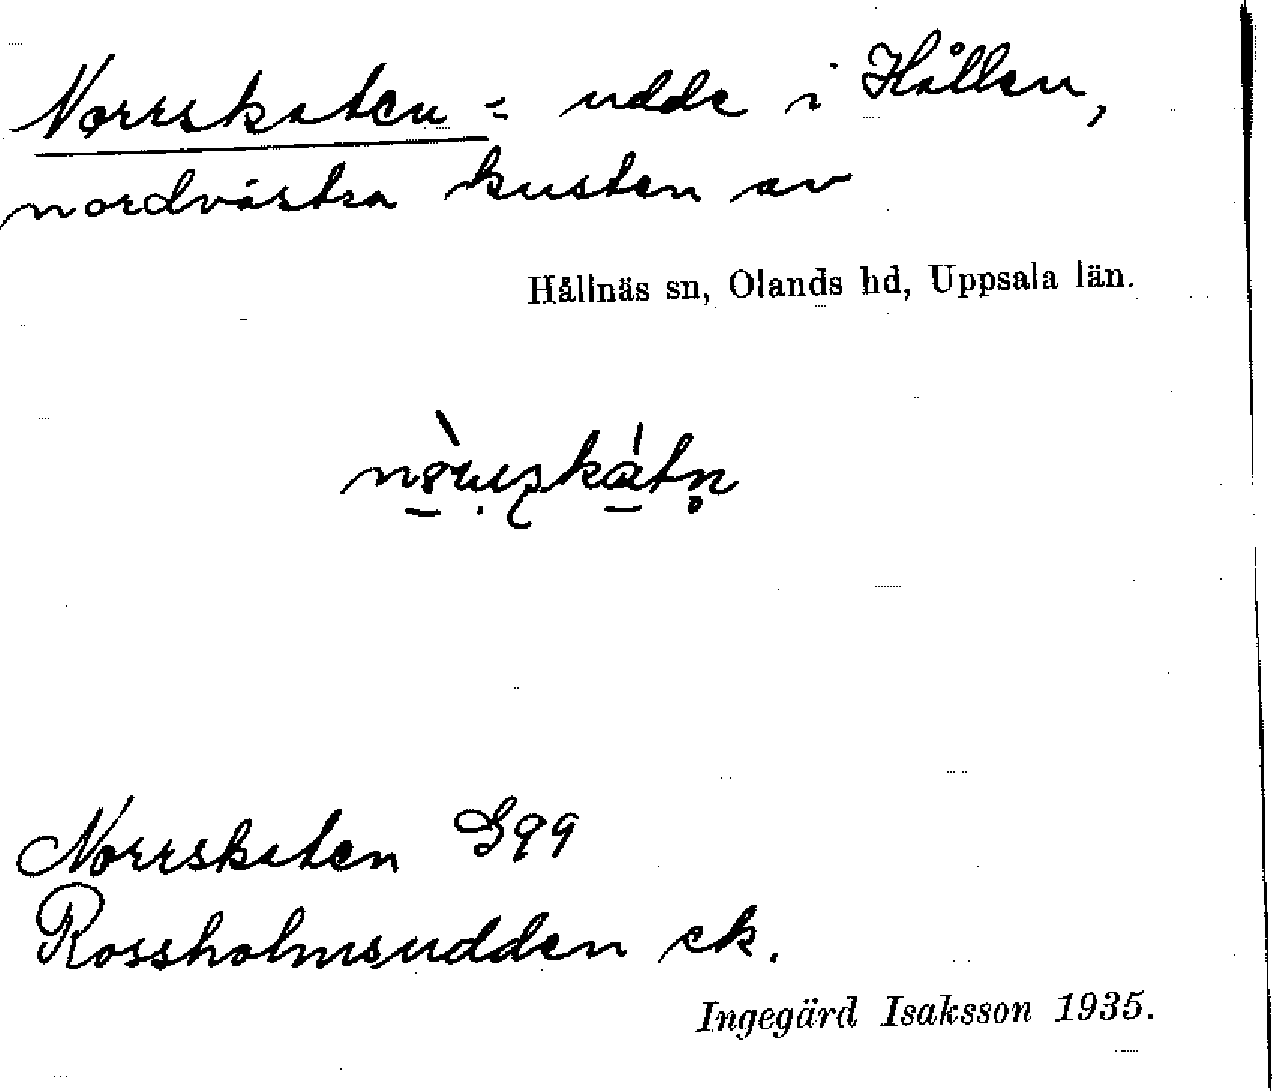 Norrskaten = udde i Hållen,
nordvästra kusten av
Hållnäs sn, Olands hd, Uppsala län.
Norrskaten G99
Rossholmsudden ek.
Ingegärd Isaksson 1935.